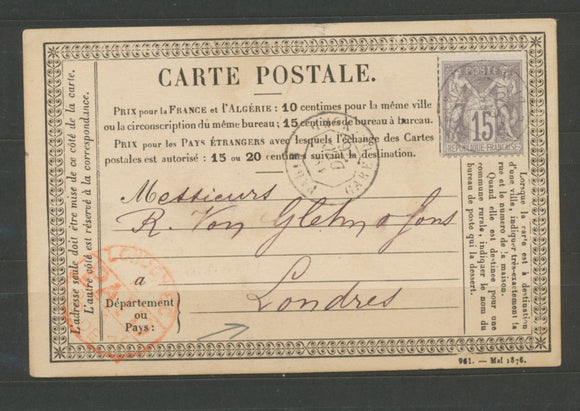 CARTE POSTALE.
PRIX pour la FRANCE et l'ALGÉRIE : 10 centimes pour la même ville
ou la circonscription du même bureau ; 15 centimes de bureau à bureau.
PRIX pour les PAYS ÉTRANGERS avec lesquels l'échange des Cartes
postales est autorisé : 15 ou 20 centimes suivant la destination.
POSTE
15
REPUBLIQUE FRANÇAISE
L'adresse seule doit être mise de ce côté de la carte.
L'autre côté est réservé à la correspondance.
Lorsque la carte est à destination
d'une ville, indiquer très-exactement la
rue et le numéro de la maison.
Quand elle est destinée pour une
commune rurale, indiquer le nom du
bureau de poste qui la dessert.
Messieurs
R. Von Glehn & Sons
à
Londres
Département
ou
Pays:
961. — Mai 1876.